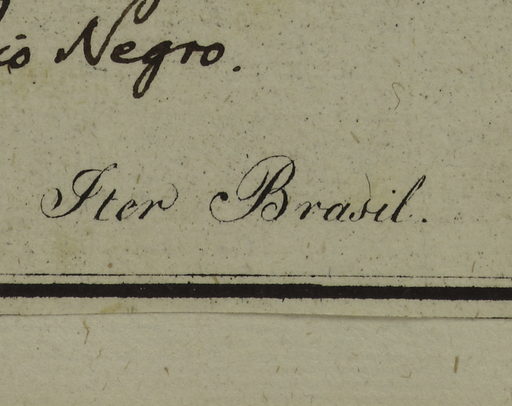 io Negro.
Iter Brasil.